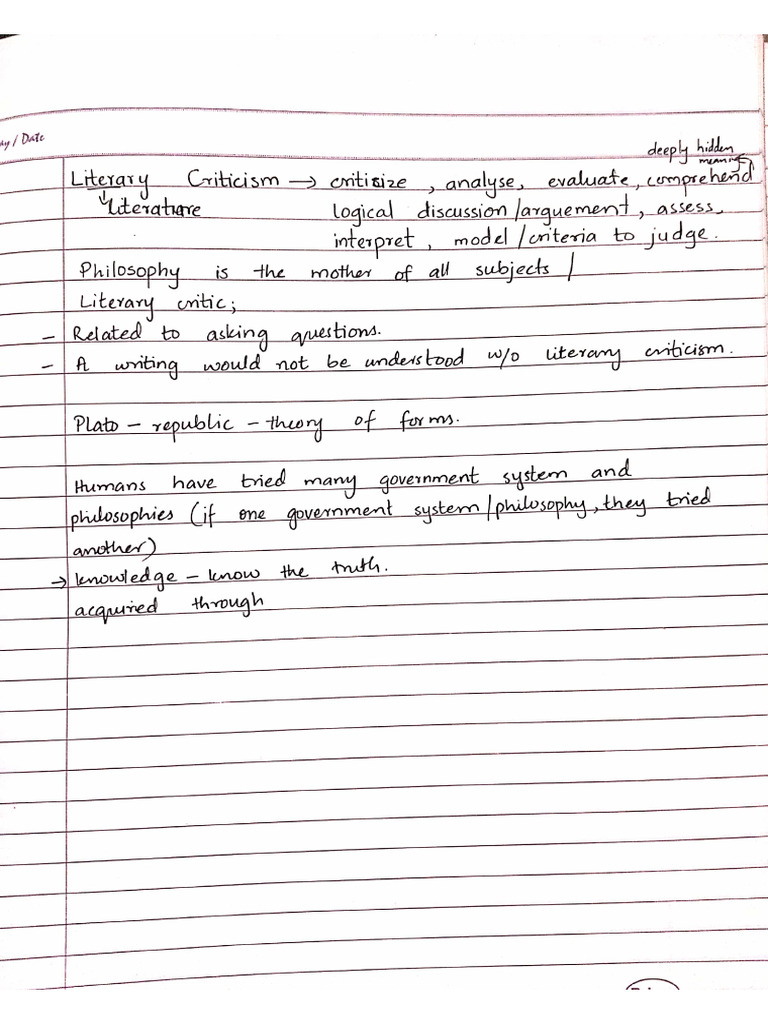 / Date
deeply hidden
meaning
Literary Criticism → critisize , analyse, evaluate, comprehend
↳ Literature logical discussion/arguement, assess,
interpret , model/criteria to judge.
Philosophy is the mother of all subjects /
Literary critic;
- Related to asking questions.
- A writing would not be understood w/o literary criticism.
Plato - republic - theory of forms.
Humans have tried many government system and
philosophies (if one government system/philosophy, they tried
another)
→ knowledge - know the truth.
acquired through